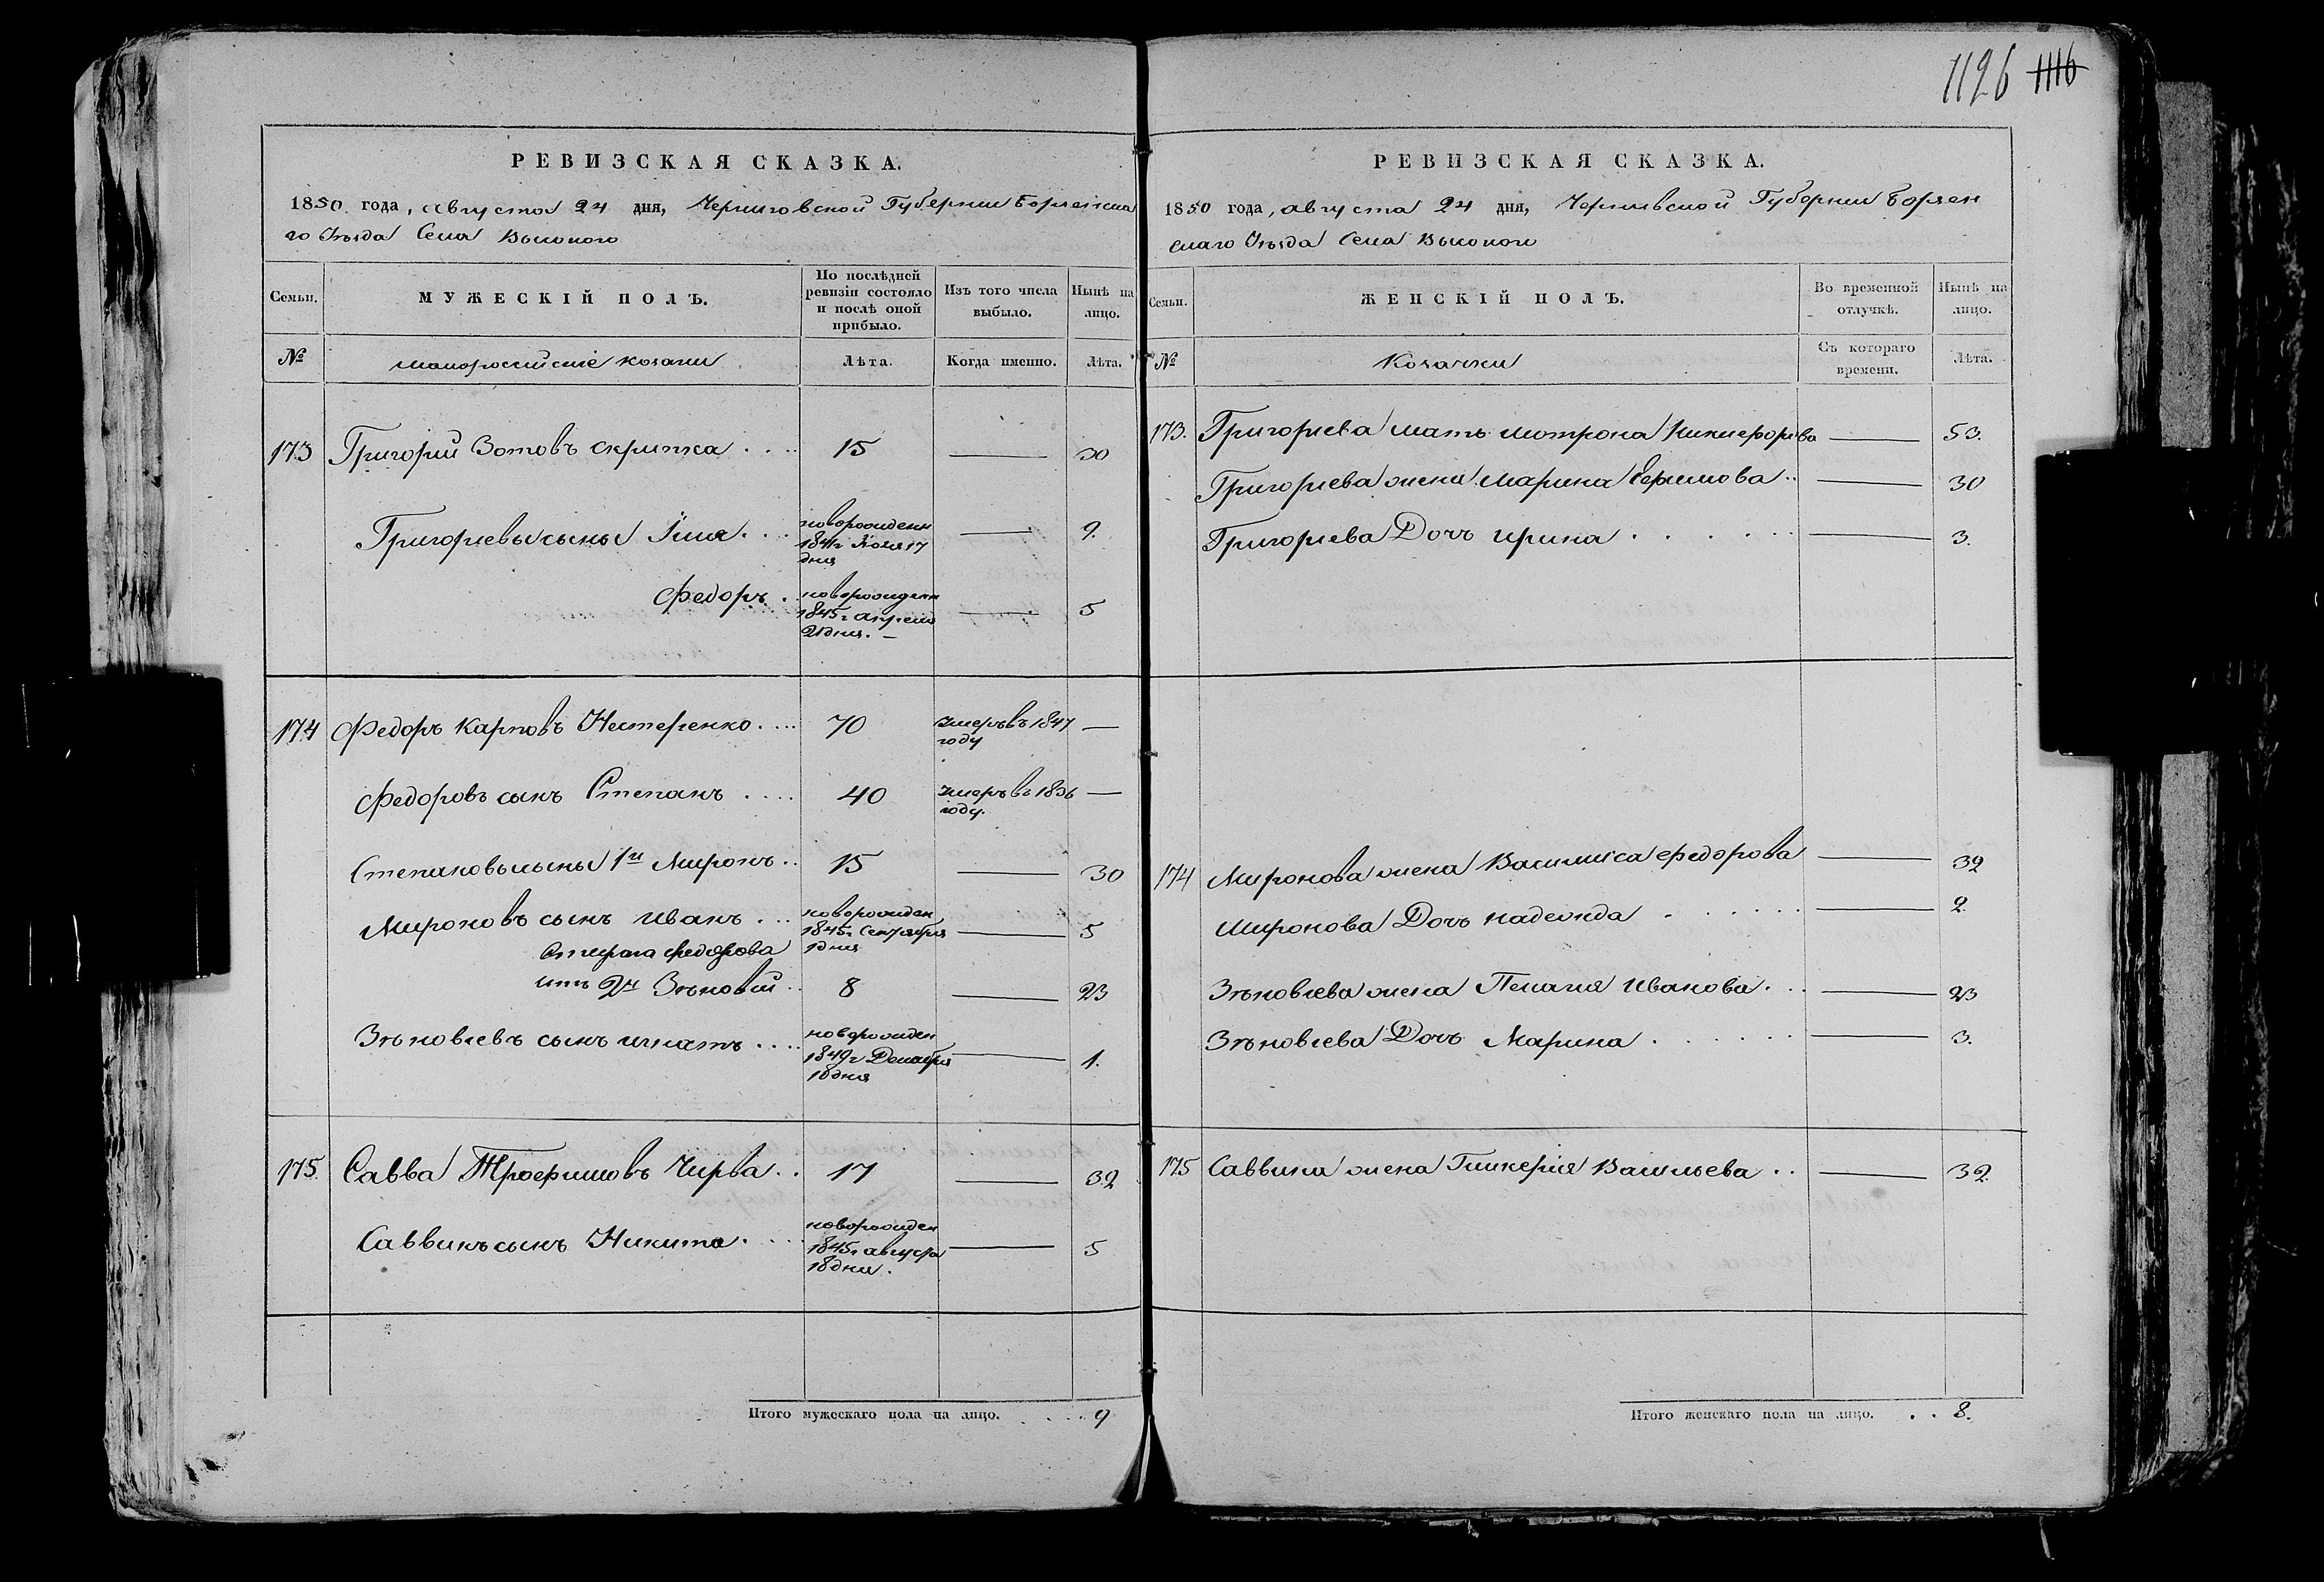 1126 1116
РЕВИЗСКАЯ СКАЗКА.
1850 года, августа 24 дня, Черниговской Губернии Борзенска
го Уѣзда Села Высокого
Семьи. МУЖЕСКІЙ ПОЛЪ. По послѣдней ревизіи состояло и послѣ оной прибыло. Изъ того числа выбыло. Нынѣ на лицо.
№ малороссийскіе козаки Лѣта. Когда именно. Лѣта.
173 Григорий Зотовъ скрипка . . . . 15 — 30
Григориевы сыны Илия . . . новорожденн — 9.
184 г Июля 17
дня
Федоръ . новорожденн — 5
1845 г апреля
21 дня. —
174 Федоръ Карповъ Нестеренко . . . . 70 умеръ въ 1847 —
году
Федоровъ сынъ Степанъ . . . . 40 умеръ въ 1836 —
году.
Степановы сыны 1й Миронъ . . 15 — 30
Мироновъ сынъ иванъ . . . новорожден — 5
1845 г Сентября
1 дня
Степана Федорова
2й Зѣновий . . 8 — 23
Зѣновіевъ сынъ игнатъ . . . . новорожден — 1.
1849 г Декабря
18 дня
175. Савва Трофимовъ Чирва . . 17 — 32
Саввинъ сынъ Никита . . . . новорожден — 5
1845 г августа
18 дня.
Итого мужескаго пола на лицо. . . . . 9
РЕВИЗСКАЯ СКАЗКА.
1850 года, августа 24 дня, Чернивской Губернии Борзен
скаго Уѣзда Села Высокого
Семьи. ЖЕНСКІЙ ПОЛЪ. Во временной отлучкѣ. Нынѣ на лицо.
№ Козачки Съ котораго времени. Лѣта.
173. Григориева мать мотрона Никифорова — 53.
Григориева жена марина Ефимова . . — 30
Григориева Дочь ирина . . . . . . — 3.
174 Миронова жена Василиса федорова — 32
Миронова Дочь надежда . . . . . . — 2.
Зѣновіева жена Пелагия иванова . . . — 23
Зѣновіева Дочь Марина . . . . . . — 3.
175 Саввина жена Гликерия Васильева . . — 32.
Итого женскаго пола на лицо. . . 8.